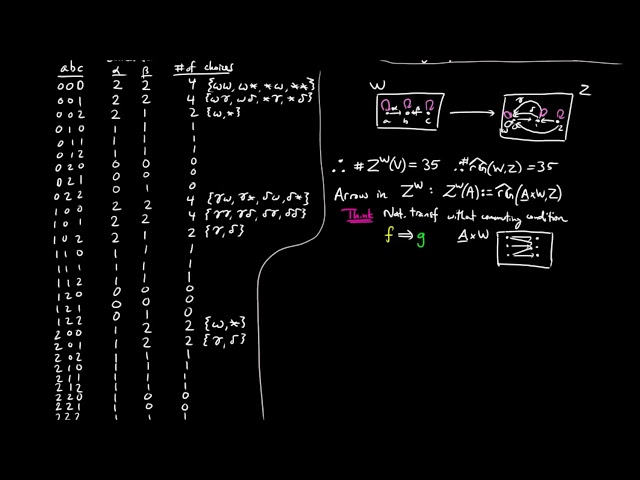 abc α β # of choices
000 2 2 4 {ωω, ω*, *ω, **}
001 2 2 4 {ωγ, ωδ, *γ, *δ}
002 2 1 2 {ω,*}
010 1 1 1
011 1 1 1
012 1 1 1
020 0 0 0
021 0 0 0
022 0 1 0
100 2 2 4 {γω, γ*, δω, δ*}
101 2 2 4 {γγ, γδ, δγ, δδ}
102 2 1 2 {γ, δ}
110 1 1 1
111 1 1 1
112 1 1 1
120 0 0 0
121 0 0 0
122 0 1 0
200 1 2 2 {ω,*}
201 1 2 2 {γ, δ}
202 1 1 1
210 1 1 1
211 1 1 1
212 1 1 1
220 1 0 0
221 1 0 0
222 1 1 1
W Z
a b c
∴ # Z^W(V) = 35 ∴ # rG(W,Z) = 35
Arrow in Z^W : Z^W(A) := rG(A×W, Z)
Think Nat. transf without commuting condition
f ⇒ g A×W